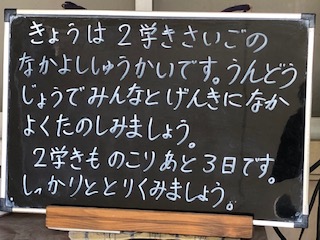 きょうは2学きさいごの
なかよししゅうかいです。うんどう
じょうでみんなとげんきになか
よくたのしみましょう。
2学きものこりあと3日です。
しっかりととりくみましょう。